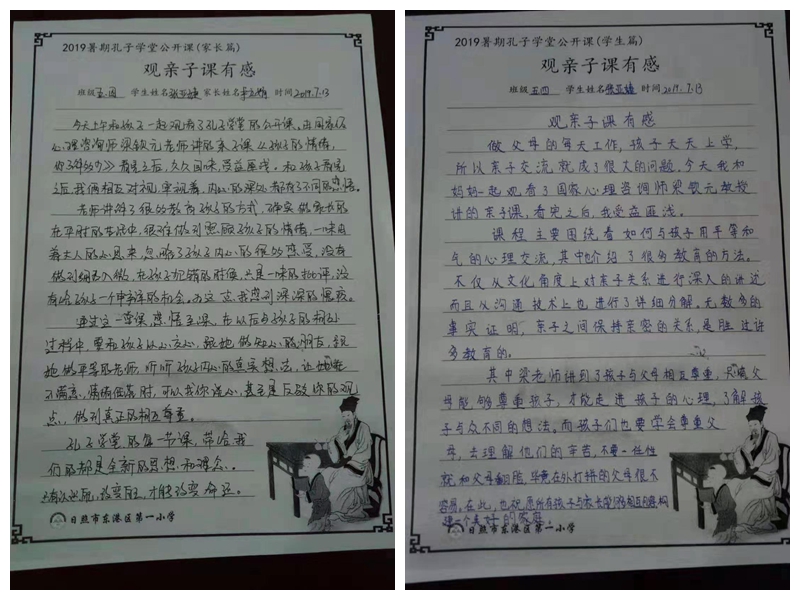 2019暑期孔子学堂公开课(家长篇)
观亲子课有感
班级五.四 学生姓名张亚婕 家长姓名 时间2019.7.13
今天上午和孩子一起观看了孔子学堂的公开课。由国家级心
理咨询师梁钦元老师讲的亲子课《从孩子的情绪,
你了解多少》看完之后,久久回味,受益匪浅。和孩子看完
之后,我俩相互对视,审视着,内心的深处都有了不同的感悟。
老师讲解了很多教育孩子的方式,确实做家长的
在平时的生活中,很难做到照顾孩子的情绪,一味由
着大人的心思来,忽略了孩子内心的很多感受,没有
做到细致入微,在孩子犯错的时候,只是一味的批评,没
有给孩子一个申辩的机会,为这点,我感到深深的愧疚。
通过这一堂课,感悟至深,在以后与孩子的相处
过程中,要和孩子以心交心,跟她做知心的朋友,跟
她做平等的老师,听听孩子内心的真实想法,让她
不满意,情绪低落时,可以找你谈心,甚至是反驳你的观
点,做到真正的相互尊重。
孔子学堂的每一节课,带给我
们的都是全新的思想和理念。
改变自己,才能改变命运。
日照市东港区第一小学
2019暑期孔子学堂公开课(学生篇)
观亲子课有感
班级五四 学生姓名张亚婕 时间2019.7.13
观亲子课有感
做父母的每天工作,孩子天天上学,
所以亲子交流就成了很大的问题,今天我和
妈妈一起观看了国家心理咨询师梁钦元教授
讲的亲子课,看完之后,我受益匪浅。
课程主要围绕着如何与孩子用平等和
气的心理交流,其中也介绍了很多教育的方法。
不仅从文化角度上对亲子关系进行深入的讲述
而且从沟通技术上也进行了详细分解,无数多的
事实证明,亲子之间保持亲密的关系,是胜过许
多教育的。
其中梁老师讲到了孩子与父母相互尊重,只有父
母能够尊重孩子,才能走进孩子的心理,了解孩
子与众不同的想法。而孩子们也要学会尊重父
母,去理解他们的辛苦,不要一任性
就和父母翻脸,毕竟在外打拼的父母很不
容易。在此,也祝愿所有孩子与家长能够相互理解,构
建一个美好的家庭。
日照市东港区第一小学